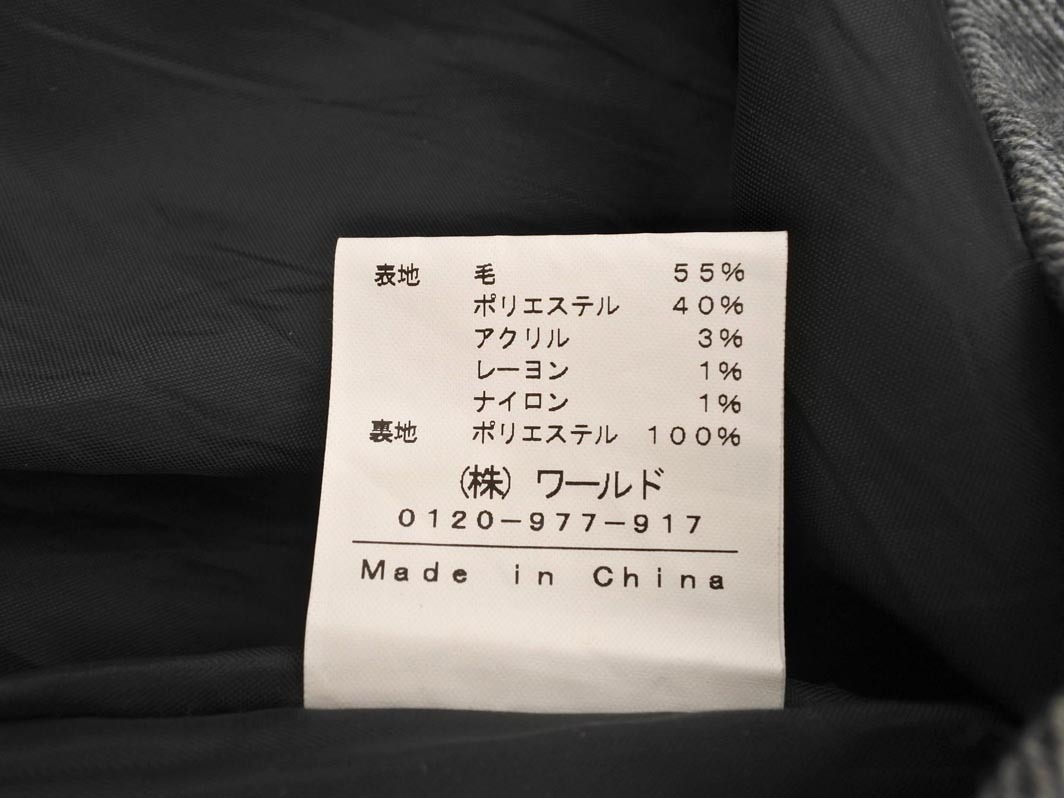 表地 毛 55%
ポリエステル 40%
アクリル 3%
レーヨン 1%
ナイロン 1%
裏地 ポリエステル 100%
(株) ワールド
0120-977-917
Made in China